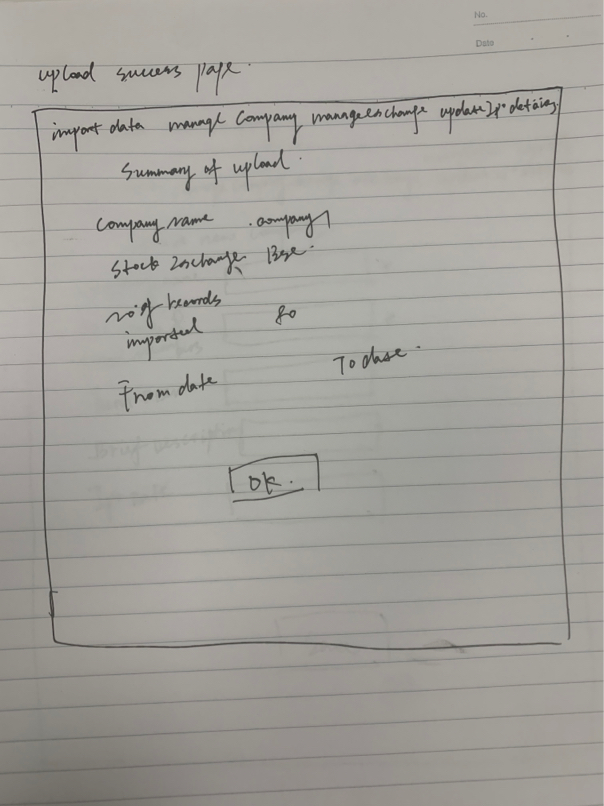 No.
Date
upload success page.
import data manage Company manage exchange update Ipo details
Summary of upload.
Company name .company 1
Stock Exchange. Bse.
no of records
imported 80
From date To date.
OK.